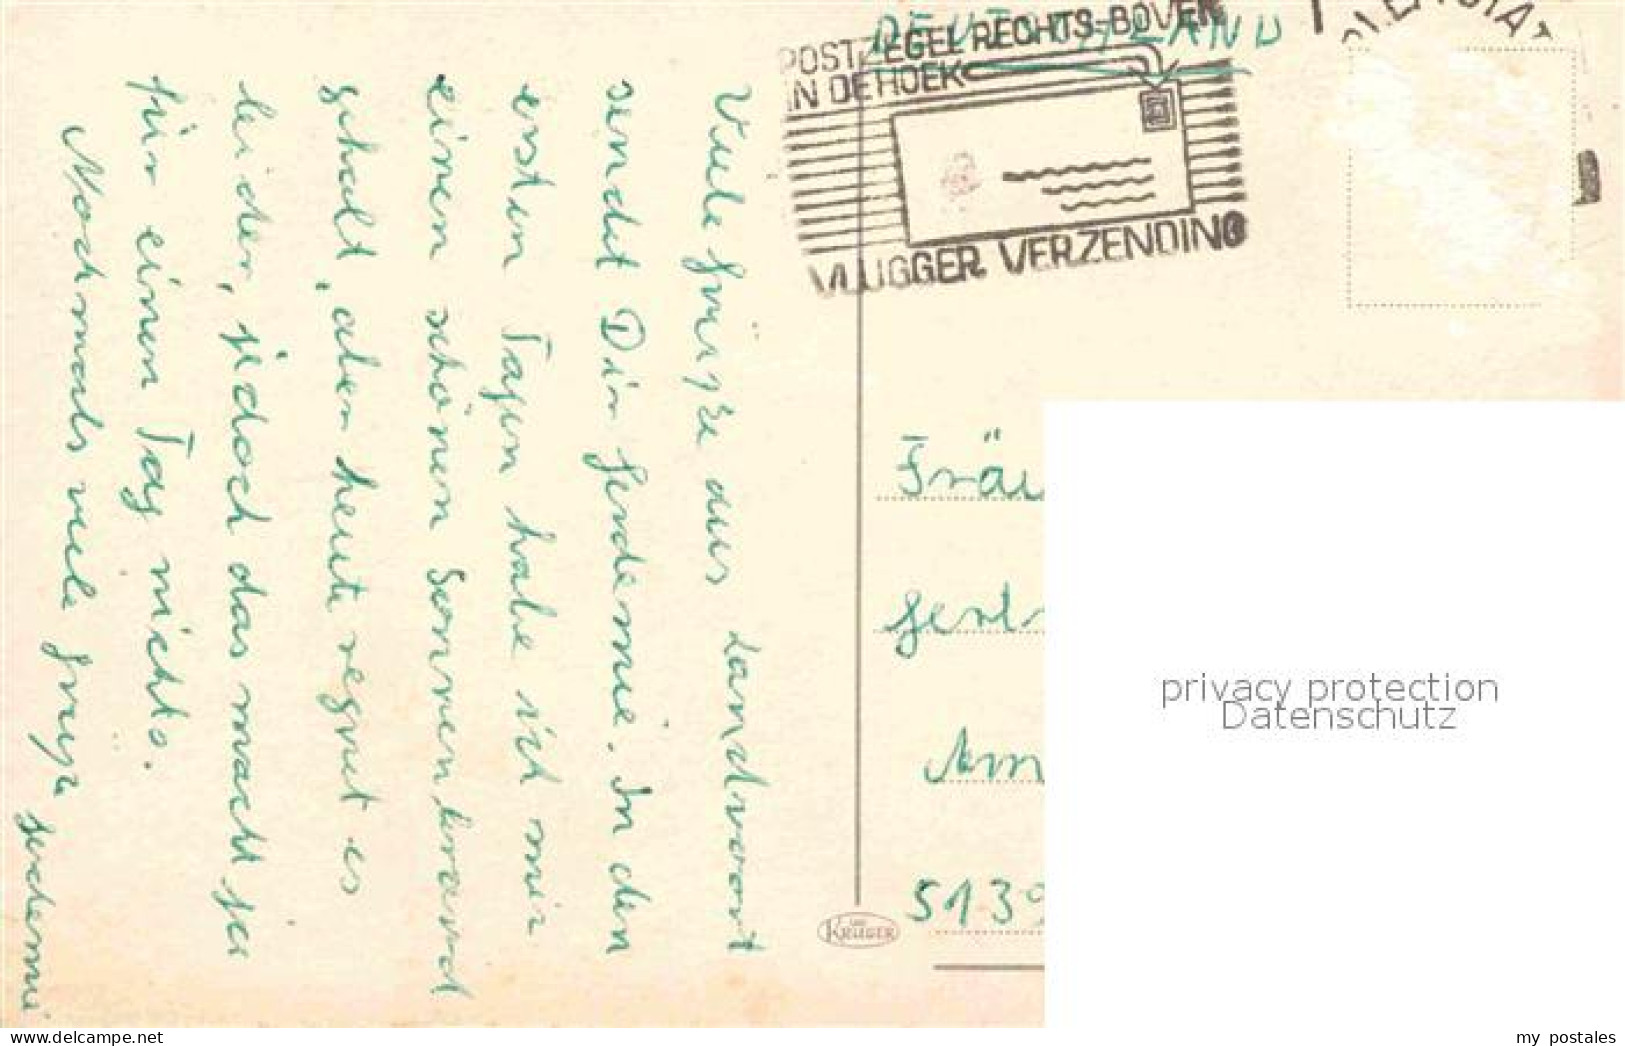 Viele Grüße aus Landvoort
sendet Dir Gerdemie. In den
ersten Tagen habe ich mir
einen schönen Sonnenbrand
geholt, aber heute regnet es
leider, jedoch das macht ja
für einen Tag nichts.
Nochmals viele Grüße
Gerdemie
DEUTSCHLAND
POSTZEGEL RECHTS BOVEN
IN DE HOEK
VLUGGER VERZENDING
Fräu
Gert
Am
5139
KRÜGER
privacy protection
Datenschutz
delcampe.net
my postales